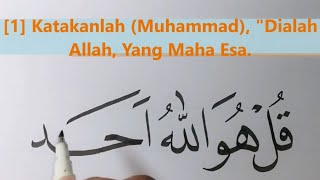 [1] Katakanlah (Muhammad), "Dialah
Allah, Yang Maha Esa.
قُلْ هُوَ اللّٰهُ اَحَد